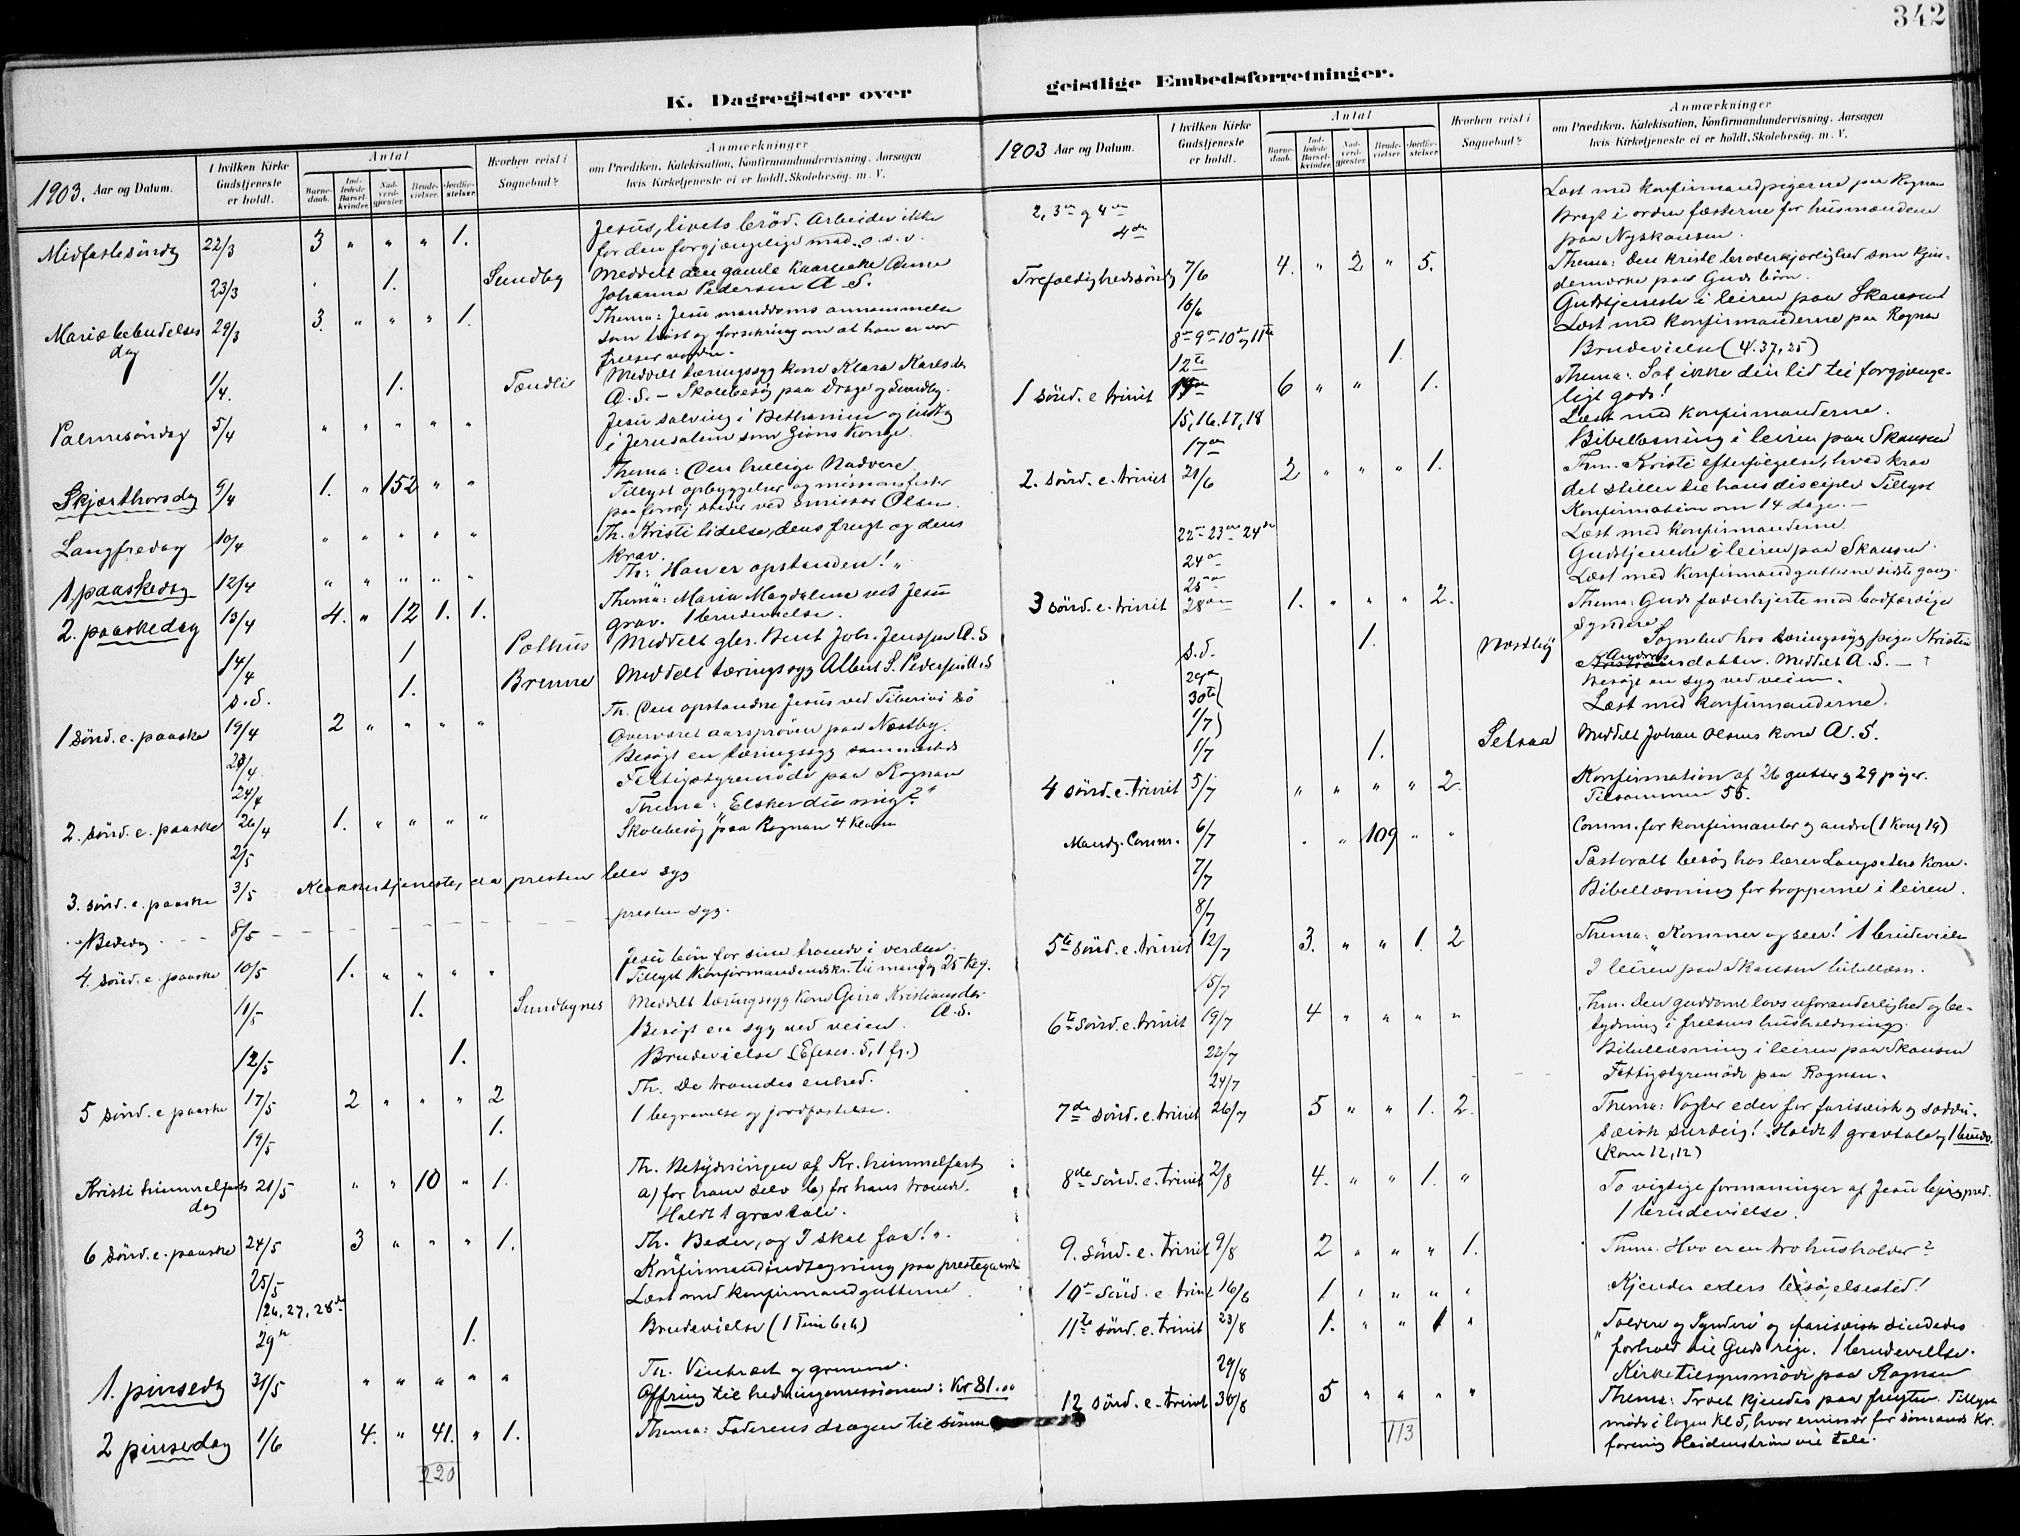 342
K. Dagregister over
geistlige Embedsforretninger.
1903. Aar og Datum.
I hvilken Kirke Gudstjeneste er holdt.
Antal
Barne-daab.
Ind-ledede Barsel-kvinder.
Nad-verd-gjester.
Brude-vielser.
Jordfæ-stelser.
Hvorhen reist i Sognebud?
Anmærkninger
om Prædiken, Katekisation, Konfirmandundervisning, Aarsagen
hvis Kirketjeneste ei er holdt, Skolebesøg, m. V.
Midfastesöndg 22/3 3 " " " 1. Jesus, livets bröd. Arbeider ikke
for den forgjængelige mad o.s.v.
23/3 1. Sundby Meddelt den gamle Anna
Johanna Pedersen A. S.
Mariæ bebudelses dag 29/3 3. " " " 1. Thema: Jesu manddoms annammelse
som tröst og forsikring om at han er vor
frelser
1/4. 1. Tændli Meddelt tæringssyg kone Klara Karlsdr
A. S. – Skolebesög paa Drage og Sundby.
Palmesöndag 5/4 " " " " " Jesu salving i Bethanien og indtog
i Jerusalem som Zions Konge.
Skjærthorsdag 9/4 1. " 152 " " Thema: Den hellige Nadvere.
Tillyst opbyggelser og missionsfester
paa forskj steder ved emissær Olsen.
Langfredag 10/4 " " " " " Th. Kristi lidelse, dens frugt og dens
krav.
1. paaskedag 12/4 " " " " " Th: Han er opstanden! "
2. paaskedag 13/4 4. " 12 1. 1. Thema: Maria Magdalena ved Jesu
grav. 1 brudevielse.
14/4 1 Pothus Meddelt Bent Joh. Jenssen A. S
s.d. 1. Brenne Meddelt tæringssyg Albert S. Pederson A. S
1 sönd. e. paaske 19/4 2 " " " " Th. Den opstandne Jesus ved Tiberias sö
Overværet aarspröven paa Næstby.
23/4. Besögt en tæringssyg sammesteds
24/4 Fattigstyremöde paa Rognan
2. sönd. e. paaske 26/4 1. " " " " Thema: "Elsker du mig?"
2/5 Skolebesög paa Rognan 4 klasse
3. sönd. e. paaske 3/5 Klokkertjeneste, da presten blev syg
Bededag 8/5 presten syg.
4. sönd. e. paaske 10/5 1. " " " " Jesu bön for sine troende i verden.
Tillyst Konfirmandindskr. til mandag 25 kl 9.
11/5 1. Sundbynes Meddelt tæringssyg kone Gina Kristiansdr
A. S.
Besögt en syg ved veien.
12/5 1. Brudevielse (Efeser. 5, 1 fg.)
5 sönd. e paaske 17/5 2 " " " 2 Th. De troendes enhed.
19/5 1. 1 begravelse og jordfæstelse.
Kristi himmelfarts dag 21/5 " " 10 " 1. Th. Betydningen af Kr. himmelfart
a) for ham selv b) for hans troende.
Holdt 1 gravtale.
6 sönd. e. paaske 24/5 3 " " " 1. Th. Beder, og I skal faa!".
25/5 Konfirmandindtegning paa prestegaarden
26, 27, 28de Læst med konfirmandgutterne
29de 1. Brudevielse (1 Tim 6.6)
1. pinsedg 31/5 " " " " " Th. Vintræet og grenene.
Offring til hedningemissionen: Kr 81.00
2 pinsedag 1/6 4. " 41. " 1. Thema: Faderens dragen til sönnen
220
1903 Aar og Datum.
I hvilken Kirke Gudstjeneste er holdt.
Antal
Barne-daab.
Ind-ledede Barsel-kvinder.
Nad-verd-gjester.
Brude-vielser.
Jordfæ-stelser.
Hvorhen reist i Sognebud?
Anmærkninger
om Prædiken, Katekisation, Konfirmandundervisning, Aarsagen
hvis Kirketjeneste ei er holdt, Skolebesøg, m. V.
2, 3de og 4de Læst med konfirmandpigerne paa Rognan
4de Bragt i orden fæsterne for husmændene
paa Nyskansen.
Trefoldighedssöndg 7/6 4. " 2 " 5. Thema: Den kristl broderkjærlighed som kjen-
demærke paa Guds börn.
10/6 Gudstjeneste i leiren paa Skansen
8de 9de 10de og 11te Læst med konfirmanderne paa Rognan
12te 1. Brudevielse (Ψ. 37, 25)
1 sönd. e. trinit 14de 6 " " 1. Thema: Sæt ikke din lid til forgjænge-
ligt gods!
15, 16, 17, 18 Læst med konfirmanderne.
17de Bibellæsning i leiren paa Skansen
2. sönd. e. trinit 21/6 2 " " " 1. Thm. Kristi efterfölgelse, hvad krav
det stiller til hans disciple. Tillyst
Konfirmation om 14 dage. –
22de 23de 24de Læst med konfirmanderne.
24de Gudstjeneste i leiren paa Skansen.
25de Læst med konfirmandgutterne sidste gang.
3 sönd. e. trinit 28de 1. " " " 2. Thema: Guds faderhjerte mod bodfærdige
syndere
s.d. 1. Næstby Sognebud hos tæringssyg pige Kristin
Andreasdatter. Meddelt A. S. –
29de Besögt en syg ved veien.
30te 1/7 Læst med konfirmanderne.
1/7 1. Setsaa Meddelt Johan Olsens kone A. S.
4 sönd. e. trinit 5/7 " " " " 2. Konfirmation af 26 gutter og 29 piger.
Tilsammen 55.
Mandg. Comm. 6/7 " " 109 " " Comm. for konfirmanter og andre (1 Kong 19)
7/7 Pastoralt besög hos lærer Langsets kone.
8/7 Bibellæsning for tropperne i leiren.
5te sönd. e. trinit 12/7 3. " " 1. 2 Thema: "Kommer og seer! 1 brudevielse
15/7 I leiren paa Skansen bibellæsn.
6te sönd. e. trinit 19/7 4 " " " " Thm. Den guddoml lovs uforanderlighed og be-
tydning i frelsens husholdning.
22/7 Bibellæsning i leiren paa Skansen
24/7 Fattigstyremöde paa Rognan.
7de sönd. e. trinit 26/7 5 " " 1. 2. Thema: Vogter eder for farisæisk og saddu-
sæisk surdeig! Holdt 1 gravtale og 1 brudv.
(Rom 12, 12)
8de sönd. e. trinit 2/8 4. " " 1. " To vigtige formaninger af Jesu bjergpræd.
1 brudevielse.
9. sönd. e. trinit 9/8 2 " " " 1. Thma. Hvo er en tro husholder?
10de sönd. e trinit 16/8 1 " " " " Kjender eders besögelsestid!
11te sönd. e. trinit 23/8 1. " " 1 " "Toldere og Syndere" og farisæisk sindedes
forhold til Guds rige. 1 brudevielse.
29/8 Kirketilsynsmöde paa Rognan
12 sönd. e. trinit 30/8 5 " " " " Thema: Træet kjendes paa frugten. Tillyst
möde i logen kl 5, hvor emissær for sömænds Kr.
forening Heidenström vil tale.
113